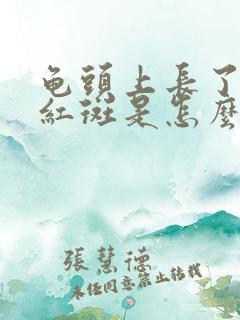 龟頭上長了
紅斑是怎麼
張慧德
未经同意禁止转载